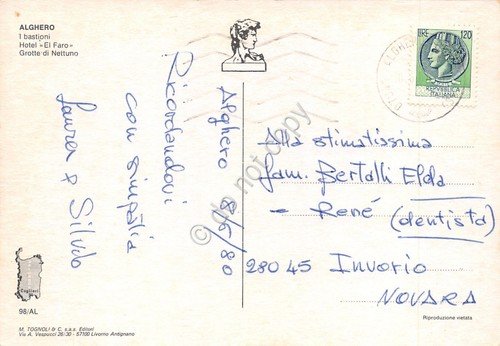 ALGHERO
I bastioni
Hotel «El Faro»
Grotte di Nettuno
Alghero 8/6/80
Ricordandovi
con simpatia
Laura & Silvio
LIRE 120
REPUBBLICA
ITALIANA
Alla stimatissima
fam. Bertalli Elda
- René (dentista)
28045 Invorio
NOVARA
do not copy
Cagliari
98/AL
M. TOGNOLI & C. s.a.s. Editori
Via A. Vespucci 26/30 - 57100 Livorno Antignano
Riproduzione vietata